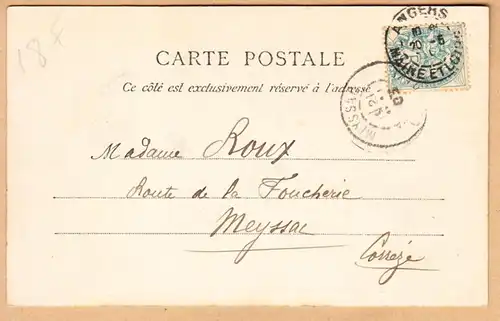 18€
CARTE POSTALE
Ce côté est exclusivement réservé à l'adresse
ANGERS
MAINE ET LOIRE
MEYSSAC
Madame Roux
Route de la Foucherie
Meyssac
Corrèze